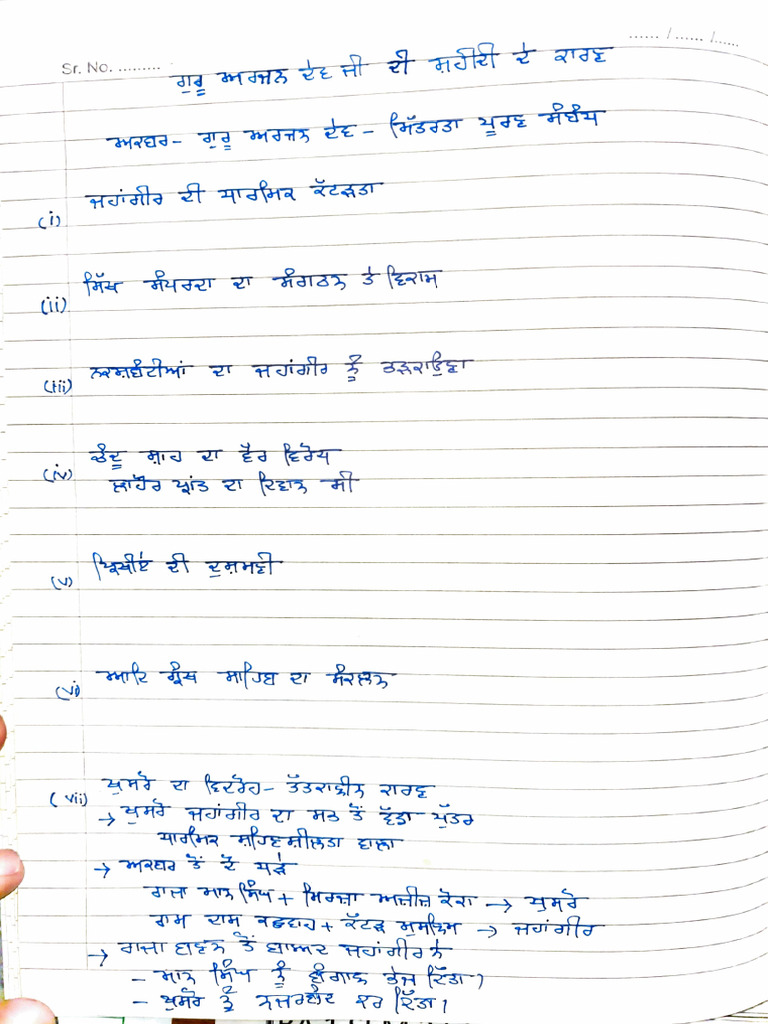 Sr. No. ......... ...... / ...... / ......
ਗੁਰੂ ਅਰਜਨ ਦੇਵ ਜੀ ਦੀ ਸ਼ਹੀਦੀ ਦੇ ਕਾਰਣ
ਅਕਬਰ - ਗੁਰੂ ਅਰਜਨ ਦੇਵ - ਮਿੱਤਰਤਾ ਪੂਰਣ ਸੰਬੰਧ
(i) ਜਹਾਂਗੀਰ ਦੀ ਧਾਰਮਿਕ ਕੱਟੜਤਾ
(ii) ਸਿੱਖ ਸੰਪਰਦਾ ਦਾ ਸੰਗਠਨ ਤੇ ਵਿਕਾਸ
(iii) ਨਕਸ਼ਬੰਦੀਆਂ ਦਾ ਜਹਾਂਗੀਰ ਨੂੰ ਭੜਕਾਉਣਾ
(iv) ਚੰਦੂ ਸ਼ਾਹ ਦਾ ਵੈਰ ਵਿਰੋਧ
ਲਾਹੌਰ ਪ੍ਰਾਂਤ ਦਾ ਦਿਵਾਨ ਸੀ
(v) ਪ੍ਰਿਥੀਏ ਦੀ ਦੁਸ਼ਮਣੀ
(vi) ਆਦਿ ਗ੍ਰੰਥ ਸਾਹਿਬ ਦਾ ਸੰਕਲਨ
(vii) ਖੁਸਰੋ ਦਾ ਵਿਦਰੋਹ - ਤੱਤਕਾਲੀਨ ਕਾਰਣ
→ ਖੁਸਰੋ ਜਹਾਂਗੀਰ ਦਾ ਸਭ ਤੋਂ ਵੱਡਾ ਪੁੱਤਰ
ਧਾਰਮਿਕ ਸ਼ਹਿਣਸ਼ੀਲਤਾ ਵਾਲਾ
→ ਅਕਬਰ ਤੋਂ ਦੋ ਧੜੇ
ਰਾਜਾ ਮਾਨ ਸਿੰਘ + ਮਿਰਜ਼ਾ ਅਜ਼ੀਜ਼ ਕੋਕਾ → ਖੁਸਰੋ
ਰਾਮ ਦਾਸ ਕਛਵਾਹ + ਕੱਟੜ ਮੁਸਲਿਮ → ਜਹਾਂਗੀਰ
→ ਰਾਜਾ ਬਣਨ ਤੋਂ ਬਾਅਦ ਜਹਾਂਗੀਰ ਨੇ
- ਮਾਨ ਸਿੰਘ ਨੂੰ ਬੰਗਾਲ ਭੇਜ ਦਿੱਤਾ।
- ਖੁਸਰੋ ਨੂੰ ਨਜ਼ਰਬੰਦ ਕਰ ਦਿੱਤਾ।